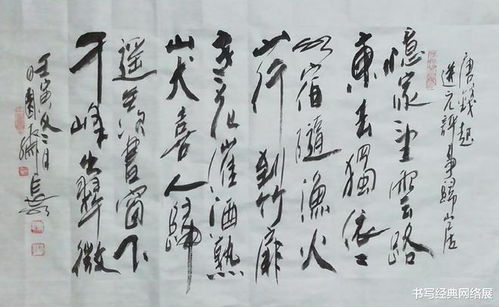 唐錢起
送元評事歸山居
憶家望雲路
東去獨依依
水宿隨漁火
山行到竹扉
寒花催酒熟
山犬喜人歸
遥羡書窗下
千峰出翠微
壬寅
书写经典网络展